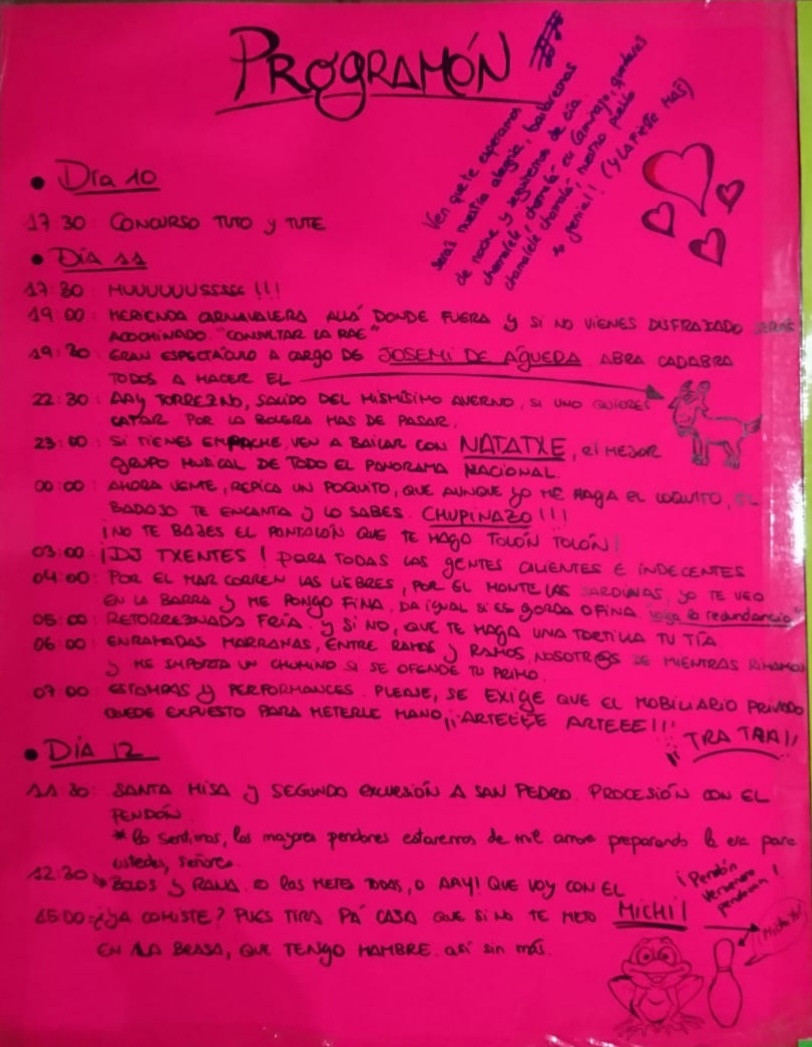 PROGRAMÓN
Ven que te esperamos
será nuestra alegría, bailaremos
de noche y seguiremos de día.
chamalele, chamalá en
chamalele chamalá nuestro pueblo
es genial! (Y LA FIESTA MÁS)
• Día 10
17:30: CONCURSO TUTO Y TUTE
• DÍA 11
17:30: MUUUUUUSSSSS !!!
19:00: MERIENDA CARNAVALERA ALLÁ DONDE FUERA Y SI NO VIENES DISFRAZADO
ACOCHINADO. "CONSULTAR LA RAE"
19:30: GRAN ESPECTÁCULO A CARGO DE JOSEMI DE ÁGUEDA ABRA CADABRA
TODOS A HACER EL
22:30: AAY TORREZNO, SALIDO DEL MISMÍSIMO AVERNO, SI UNO QUIERES
CATAR POR LA BOLERA HAS DE PASAR.
23:00: SI TIENES EMPACHE, VEN A BAILAR CON NATATXE, el MEJOR
GRUPO MUSICAL DE TODO EL PANORAMA NACIONAL.
00:00: AHORA VENTE, REPICA UN POQUITO, QUE AUNQUE YO ME HAGA EL LOQUITO, EL
BADAJO TE ENCANTA Y LO SABES. CHUPINAZO !!!
¡NO TE BAJES EL PANTALÓN QUE TE HAGO TOLÓN TOLÓN!
03:00: ¡DJ TXENTES! PARA TODAS LAS GENTES CALIENTES E INDECENTES
04:00: POR EL MAR CORREN LAS LIEBRES, POR EL MONTE LAS SARDINAS, YO TE VEO
EN LA BARRA Y ME PONGO FINA, DA IGUAL SI ES GORDA O FINA "valga la redundancia"
05:00: RETORREZNADO FRÍA. Y SI NO, QUE TE HAGA UNA TORTILLA TU TÍA
06:00: ENRAMADAS MARRANAS, ENTRE RAMOS Y RAMOS, NOSOTR@S MIENTRAS
Y ME IMPORTA UN CHUMINO SI SE OFENDE TU PRIMO.
07:00: ESTAMPAS Y PERFORMANCES. PLEASE, SE EXIGE QUE EL MOBILIARIO PRIVADO
QUEDE EXPUESTO PARA METERLE MANO, ¡¡ARTEEEE ARTEEE!!!
¡¡TRA TRA!!
• DÍA 12
11:30: SANTA MISA Y SEGUNDO EXCURSIÓN A SAN PEDRO. PROCESIÓN CON EL
PENDÓN.
* lo sentimos, los mayores pendones estaremos de mil amores preparando la era para
ustedes, señores.
12:30 * BOLOS Y RANA. O las METES TODAS, O AAY! QUE VOY CON EL
¡Pendón
verbenero
pendona!
15:00: ¿YA COMISTE? PUES TIRA PA' CASA QUE SI NO TE METO MICHI!
EN LA BRASA, QUE TENGO HAMBRE. así sin más.